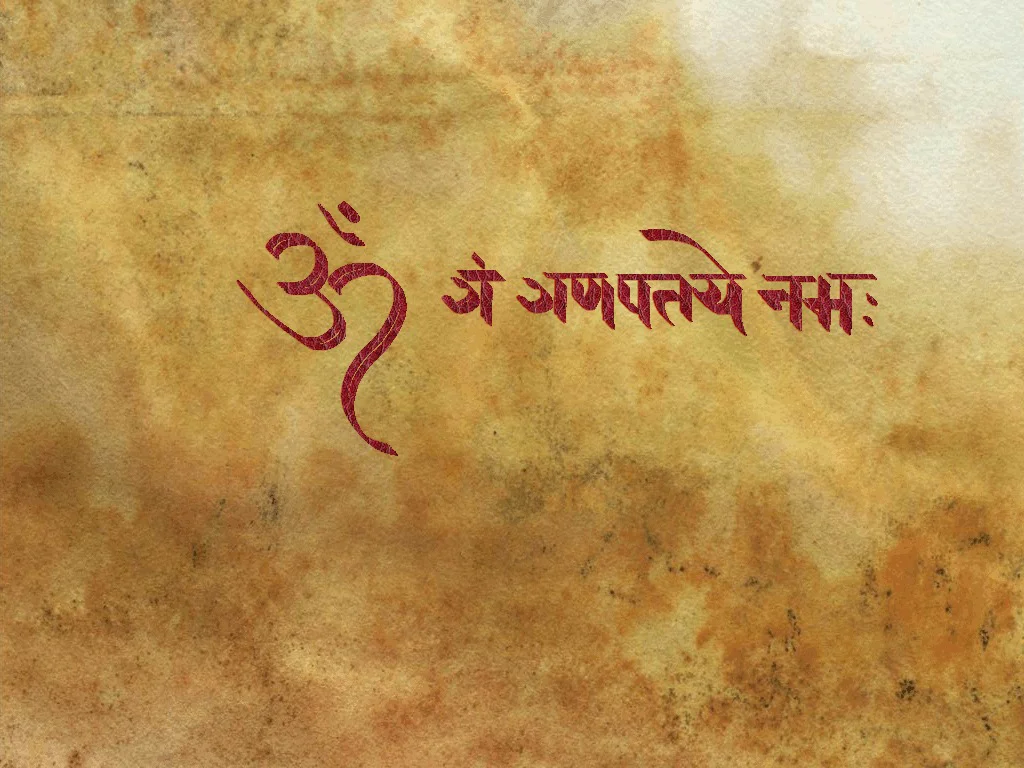 ॐ गं गणपतये नमः